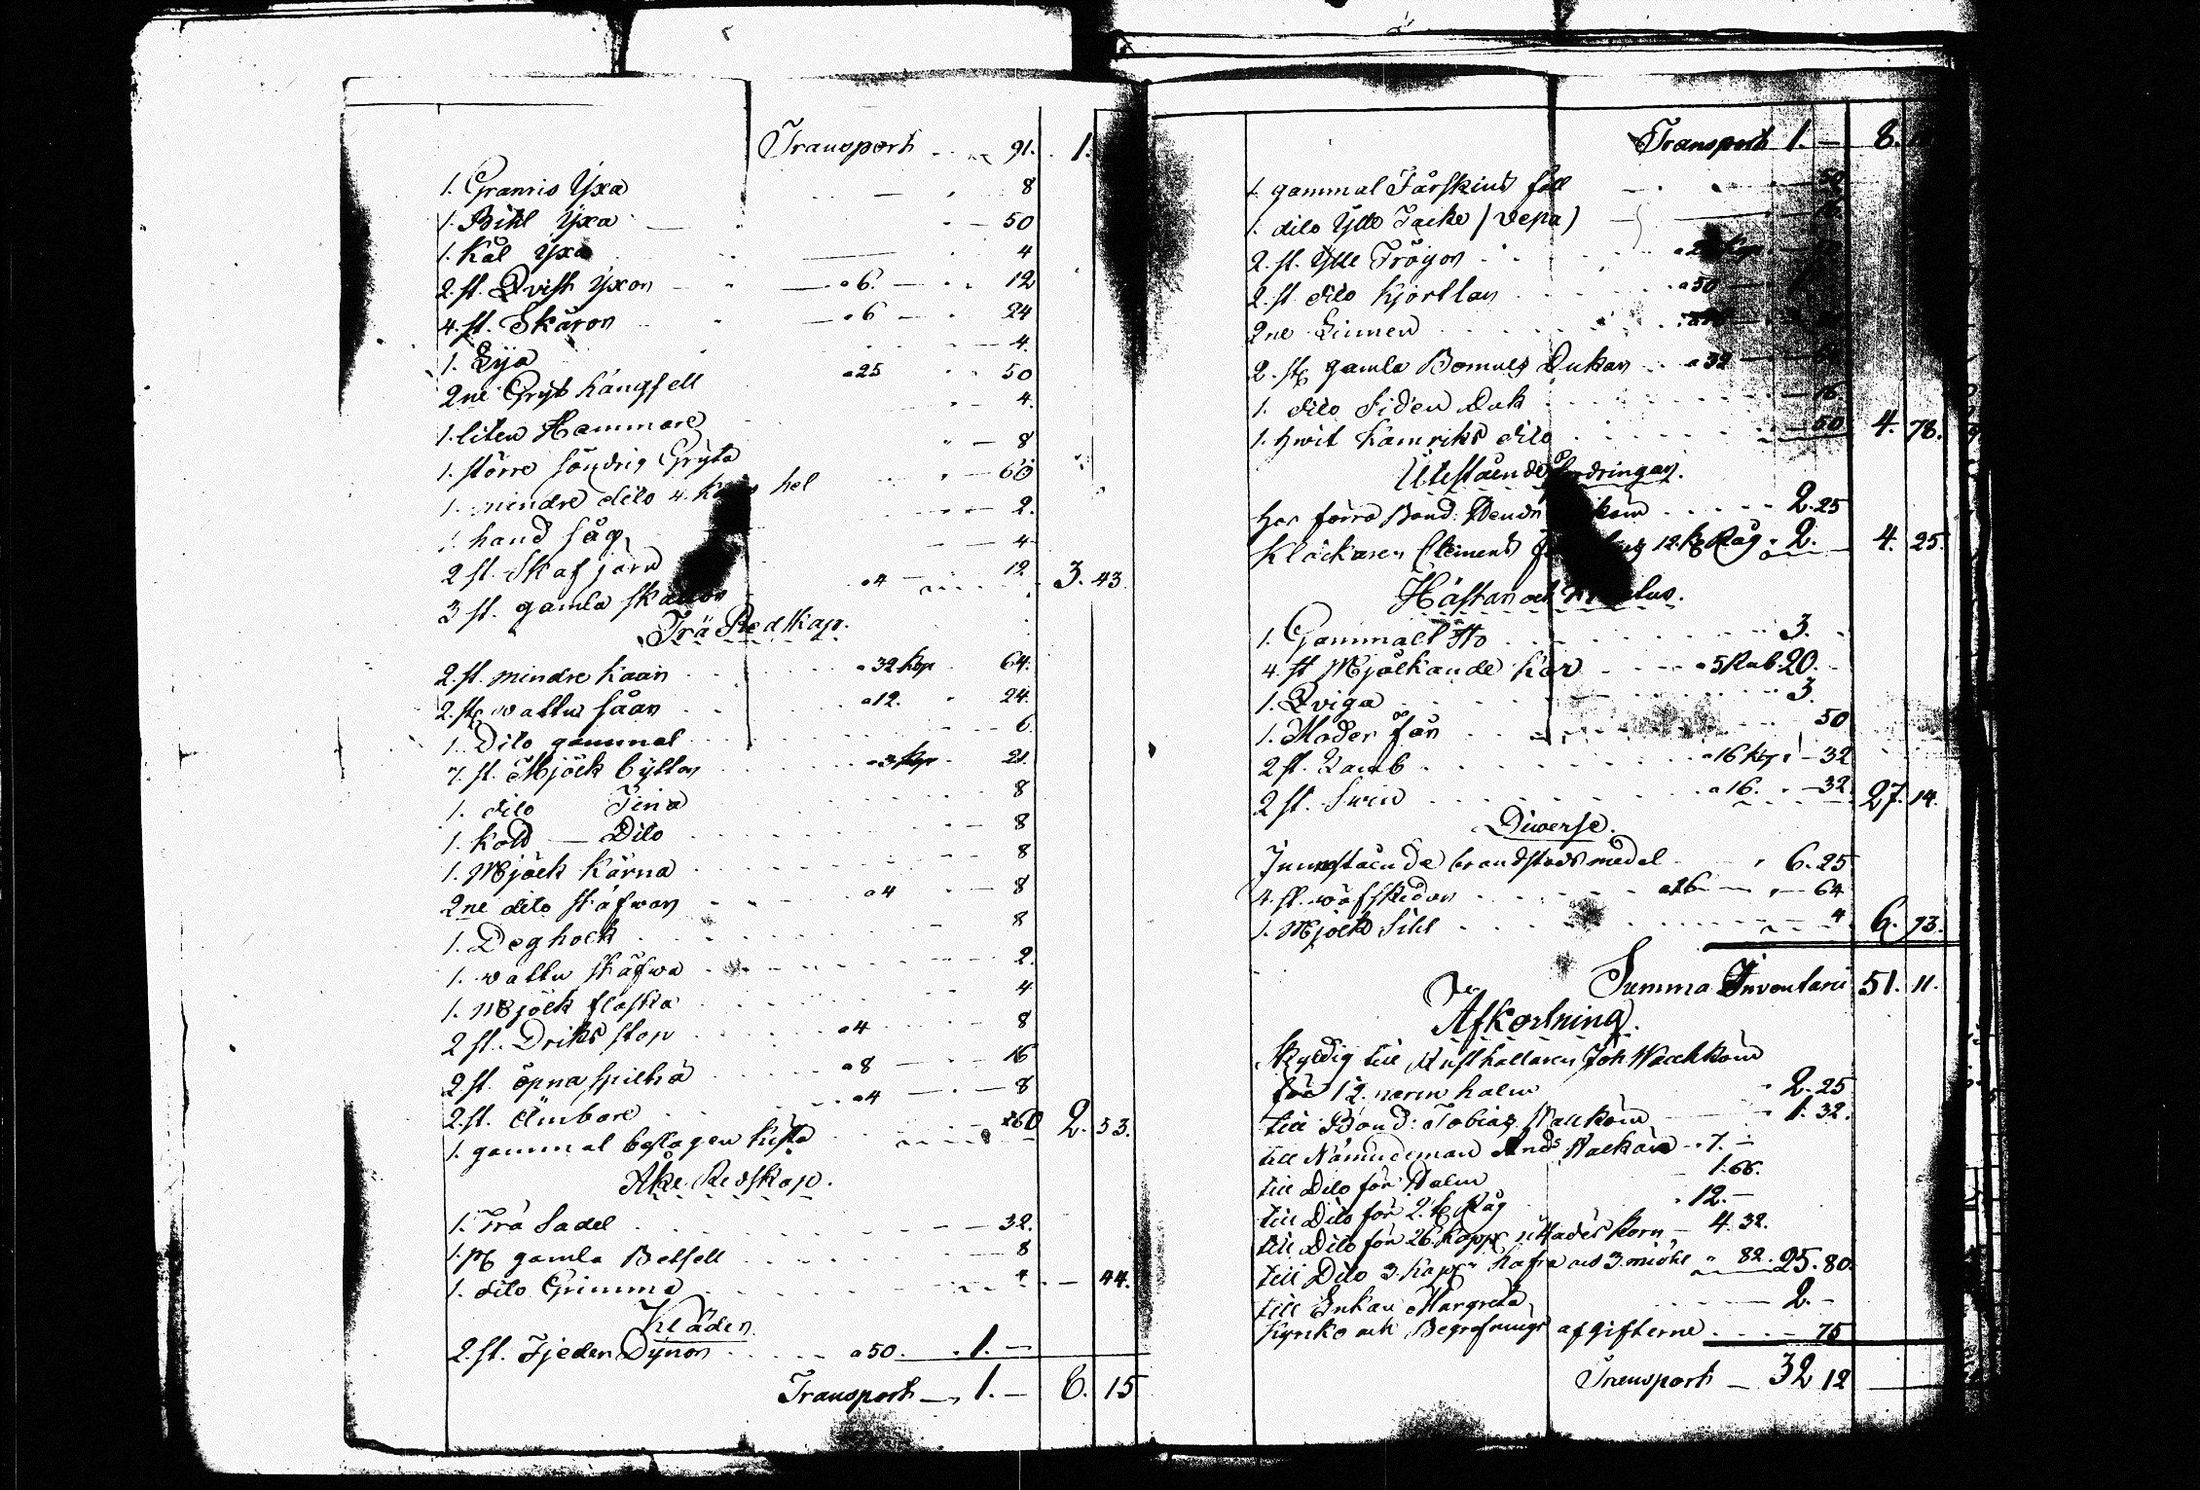 Transport 91. 1.
1. Gramris Yxa 8
1. Bihl Yxa 50
1. Kål Yxa 4
2. st. Qvist Yxor a 6. 12
4. st. Skäror a 6 24
1. Lÿa 4.
2ne Grÿt hängsell a 25 50
1. liten Hammare 4.
1. större söndrig Grÿta 8
1. mindre dito 4. hel 60
1. hand såg 2.
2 st. Skafjärn 4
3 st. gamla a 4 12 3. 43
Trä Redskap.
2. st. mindre kaar a 32 kop 64.
2. st. wattu såar a 12. 24.
1. Dito gammal 6
7. st. Mjölk bÿttor a 3 kop 21.
1. dito Tina 8
1. Kold Dito 8
1. Mjölk Kärna 8
2ne dito stäfwor a 4 8
1. Deghoek 8
1. wattu skäfwa 2.
1. Mjölk flaska 4
2 st. Driks stop a 4 8
2 st. öpna spilträ a 8 16
2. st. Ämbare a 4 8
1. gammal beslagen kista 60 2. 53.
Åke Redskap.
1. Trä Sadel 32.
1. pr gamla Betsell 8
1. dito Grimma 4 44.
Kläder
2. st. Fjeder Dÿnor a 50. 1.
Transport 1. 6. 15
Transport 1. 8.
1. gammal Fårskins fäll 50
1. dito Ylle Täcke (Vepa) 16
2. st. Ylle Tröyor
2. st. dito Kjortlar a 50
2ne Linnen
2. st. gamla Bomuls Dukar a 32
1. dito Siden Duk 16
1. hwit Kamriks dito 50 4. 78.
Utestående fordringar.
Hos förra Bond. 2. 25
Klåckaren Clement 12. Råg 2. 4. 25.
Hästar och
1. Gammalt Sto 3.
4. st Mjölkande Kor a 5 Rub. 20.
1. Qviga 3.
1. Moder får 50
2 st. Lamb a 16 kop 32
2 st. Swin a 16. 32 27. 14.
Diverse.
Innestående brandstods medel 6. 25
4. st. wäfskedar a 16 64
1. Mjölk Sihl 4 6. 93.
Summa Inventarii 51. 11.
Afkortning.
Skyldig till Rusthållaren Joh.
för 12. halm 2. 25
till Bond: Tobias 1. 32.
till Nämndeman And: 7.
till Dito för Halm 1. 66.
till Dito för 2. Råg 12.
till Dito för 26. kapp. Korn 4. 32.
till Dito 3. kapp. hafra 82. 25. 80.
till Enkan Margreta 2.
Kyrko och Begrafnings afgifterne 75
Transport 32 12